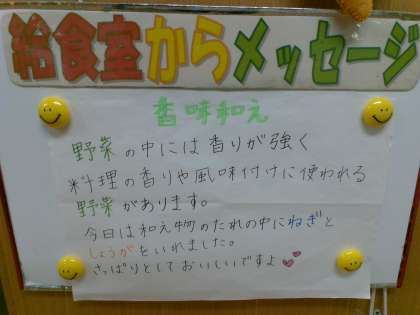 給食室からメッセージ
香味和え
野菜の中には香りが強く
料理の香りや風味付けに使われる
野菜があります。
今日は和え物のたれの中にねぎと
しょうがをいれました。
さっぱりとしておいしいですよ